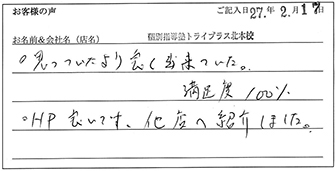 お客様の声
ご記入日27.年2.月17日
お名前&会社名（店名） 個別指導塾トライプラス北本校
○思っていたより良く出来ていた。
満足度 100%
○HP良いです、他店へ紹介しました。